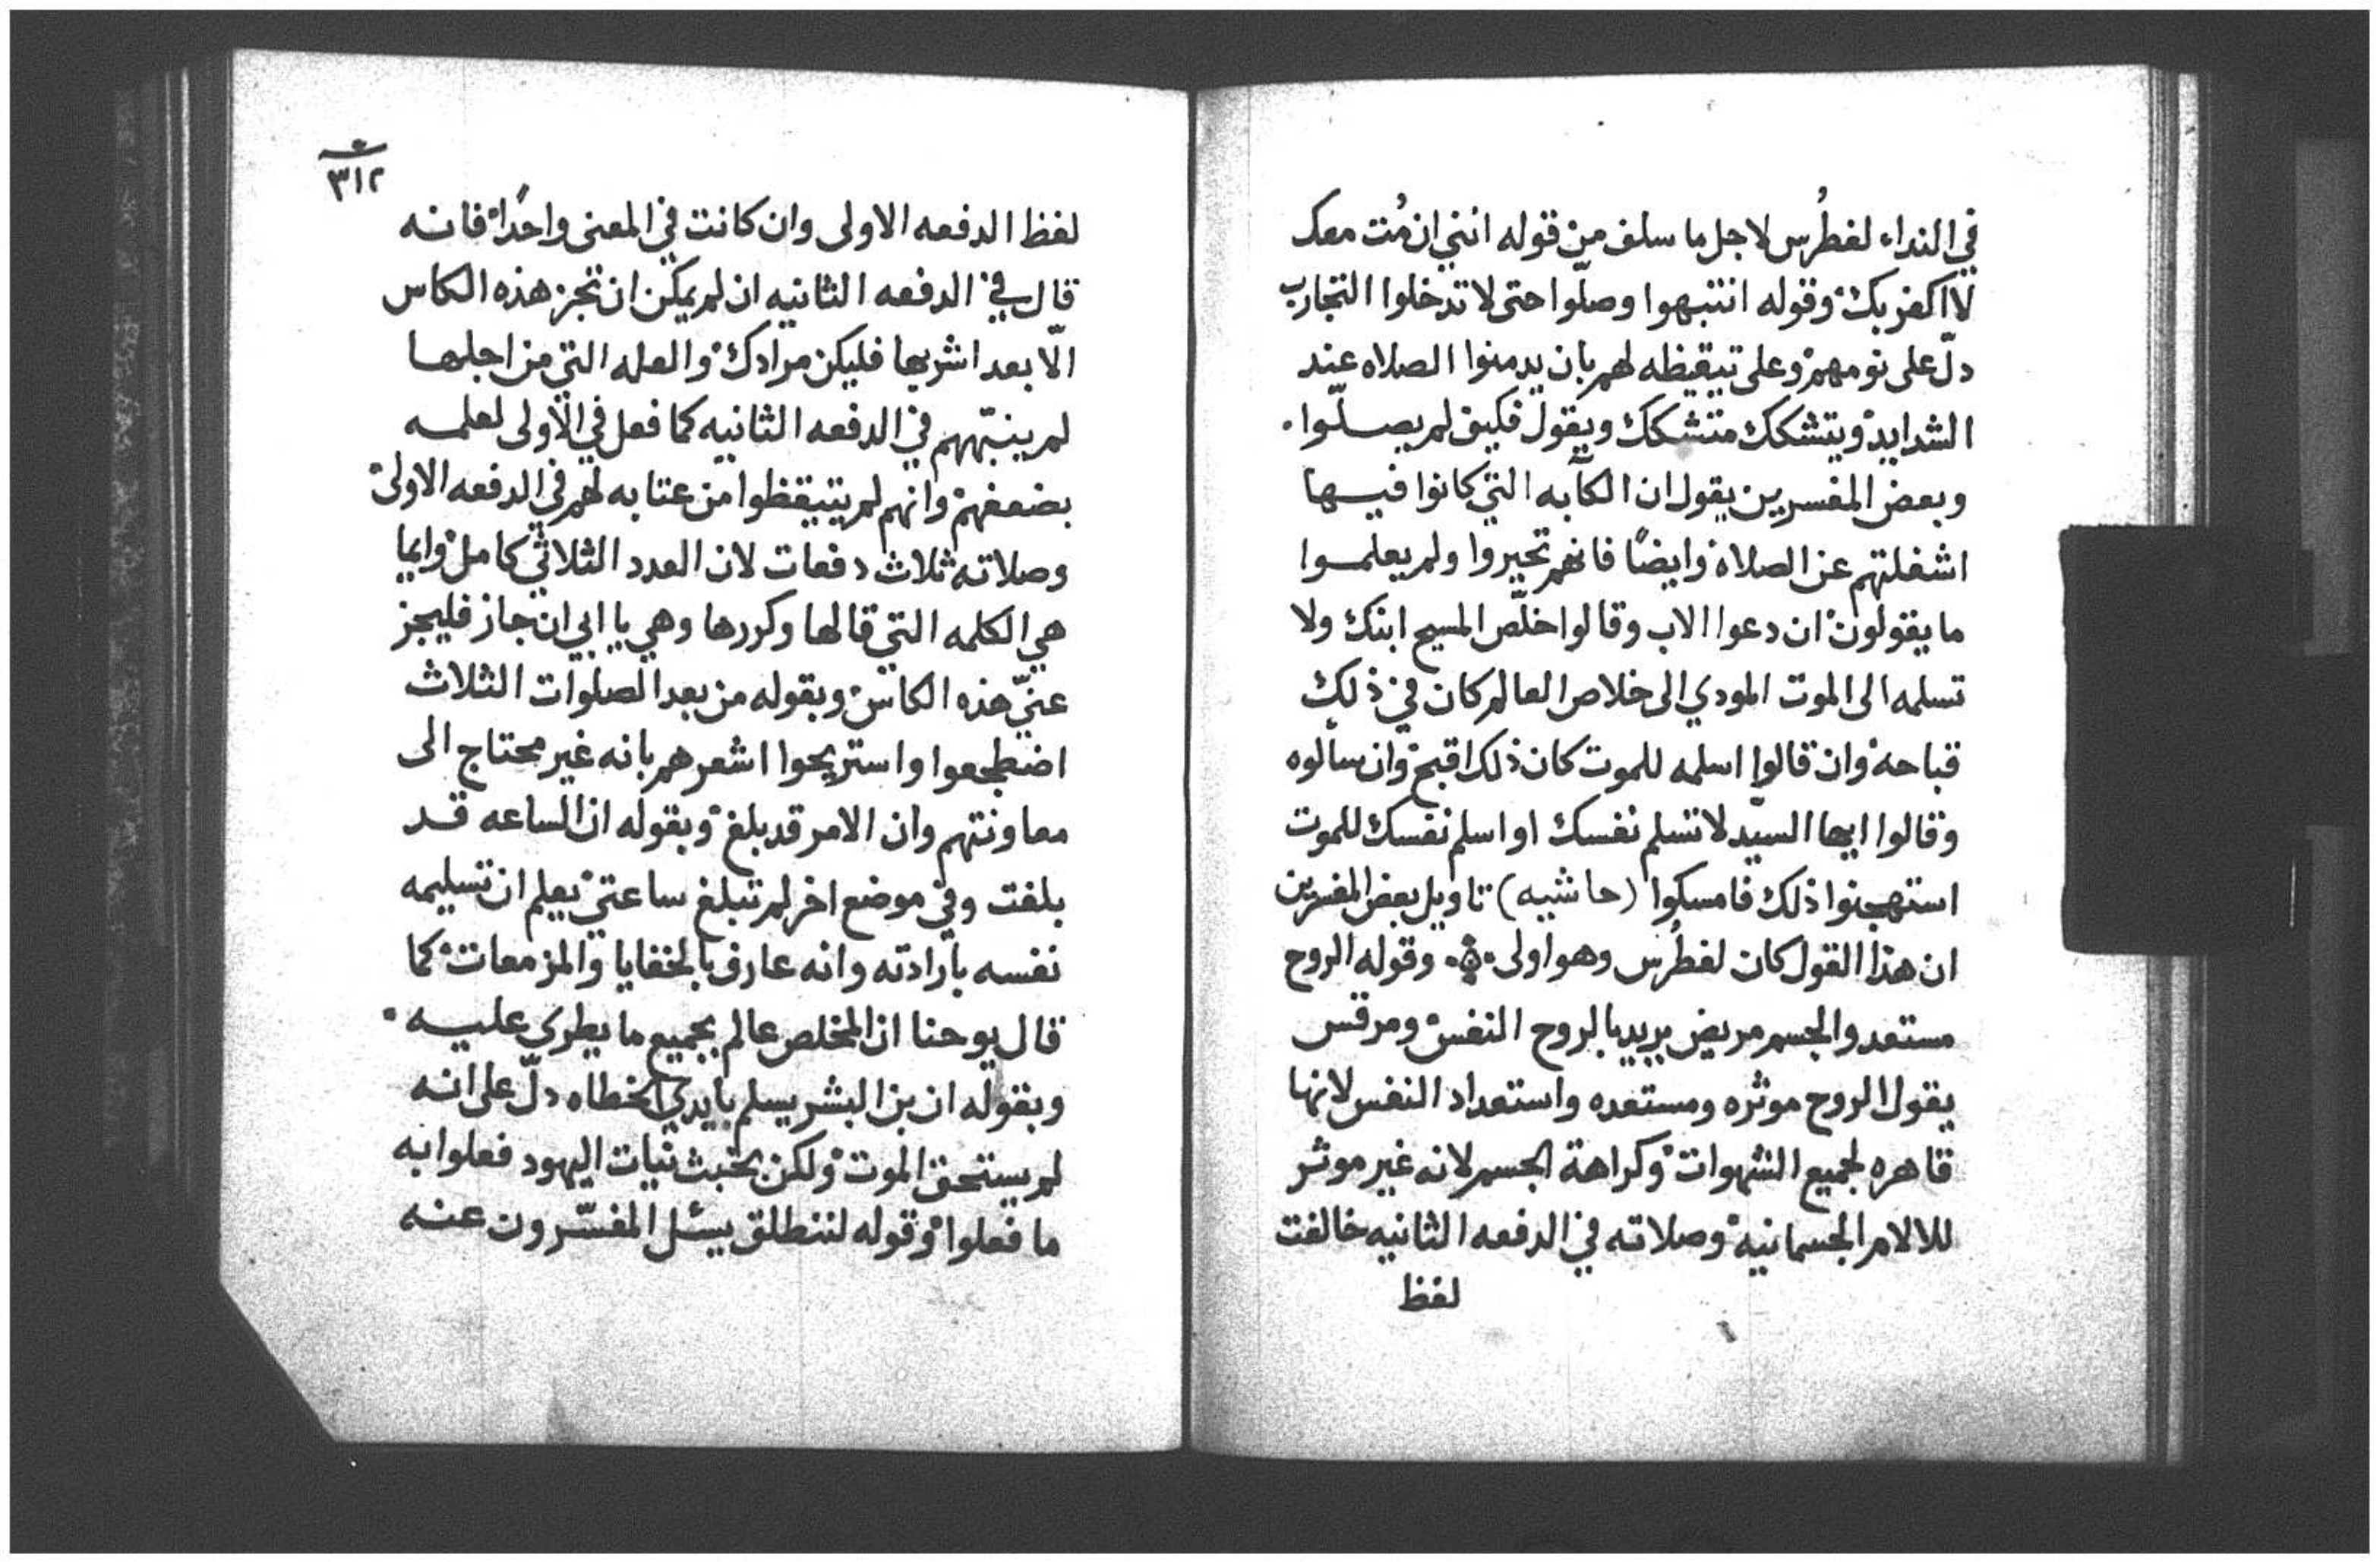 في النداء لفطرُس لاجل ما سلف من قوله انني ان مُت معك
لا اكفر بك وقوله انتبهوا وصلّوا حتى لا تدخلوا التجارب
دلّ على نومهم وعلى تيقيظه لهم بان يدمنوا الصلاه عند
الشدايد ويتشكك متشكك ويقول فكيف لم يصلّوا.
وبعض المفسرين يقول ان الكآبه التي كانوا فيها
اشغلتهم عن الصلاة وايضًا فانهم تحيروا ولم يعلموا
ما يقولون ان دعوا الاب وقالوا خلّص المسيح ابنك ولا
تسلمه الى الموت المودي الى خلاص العالم كان في ذلك
قباحة وان قالوا اسلمه للموت كان ذلك اقبح وان سألوه
وقالوا ايها السيّد لا تسلم نفسك او اسلم نفسك للموت
استهجنوا ذلك فامسكوا (حاشيه) تاويل بعض المفسرين
ان هذا القول كان لفطرُس وهو اولى وقوله الروح
مستعد والجسم مريض يريد بالروح النفس ومرقس
يقول الروح موثره ومستعده واستعداد النفس لانها
قاهره لجميع الشهوات وكراهة الجسم لانه غير موثر
للالام الجسمانية وصلاته في الدفعه الثانيه خالفت
لفظ
٣١٢
لفظ الدفعه الاولى وان كانت في المعنى واحدًا فانه
قال في الدفعه الثانيه ان لم يمكن ان تجز هذه الكاس
الّا بعد اشربها فليكن مرادك والعله التي من اجلها
لم ينبّههم في الدفعه الثانيه كما فعل في الأولى لعلمه
بضعفهم وانهم لم يتيقظوا من عتابه لهم في الدفعه الاولى
وصلاته ثلاث دفعات لان العدد الثلاثي كامل وايما
هي الكلمه التي قالها وكررها وهي يا ابي ان جاز فليجز
عنيّ هذه الكاس وبقوله من بعد الصلوات الثلاث
اضطجعوا واستريحوا اشعرهم بانه غير محتاج الى
معاونتهم وان الامر قد بلغ وبقوله ان الساعه قد
بلغت وفي موضع اخر لم تبلغ ساعتي يعلم ان تسليمه
نفسه بارادته وانه عارف بالخفايا والمزمعات كما
قال يوحنا ان المخلص عالم بجميع ما يطرى عليه.
وبقوله ان بن البشر يسلم بايدي الخطاه دلّ على انه
لم يستحق الموت ولكن بخبث نيات اليهود فعلوا به
ما فعلوا وقوله لننطلق يسئل المفسّرون عنه